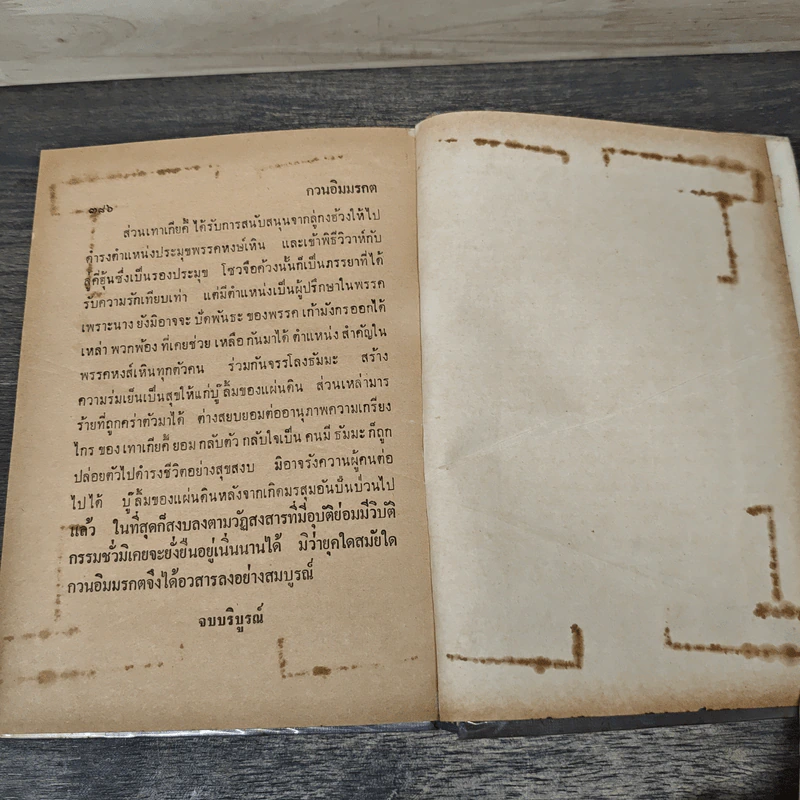 ๓๘๖
กวนอิมมรกต
ส่วนเทาเกียคี้ ได้รับการสนับสนุนจากลู่กงฮ้วงให้ไป
ดำรงตำแหน่งประมุขพรรคหงษ์เหิน และเข้าพิธีวิวาห์กับ
สู่คีฮุ้นซึ่งเป็นรองประมุข โซวจือค้วงนั้นก็เป็นภรรยาที่ได้
รับความรักเทียบเท่า แต่มีตำแหน่งเป็นผู้ปรึกษาในพรรค
เพราะนาง ยังมิอาจจะ ปัดพันธะ ของพรรค เก้ามังกร ออกได้
เหล่า พวกพ้อง ที่เคยช่วย เหลือ กันมาได้ ตำแหน่ง สำคัญใน
พรรคหงส์เหินทุกตัวคน ร่วมกันจรรโลงธัมมะ สร้าง
ความร่มเย็นเป็นสุขให้แก่บู๊ลิ้มของแผ่นดิน ส่วนเหล่ามาร
ร้ายที่ถูกคร่าตัวมาได้ ต่างสยบยอมต่ออานุภาพความเกรียง
ไกร ของ เทาเกียคี้ ยอม กลับตัว กลับใจเป็น คนมี ธัมมะ ก็ถูก
ปล่อยตัวไปดำรงชีวิตอย่างสุขสงบ มิอาจรังควานผู้คนต่อ
ไปได้ บู๊ลิ้มของแผ่นดินหลังจากเกิดมรสุมอันปั่นป่วนไป
แล้ว ในที่สุดก็สงบลงตามวัฏสงสารที่มีอุบัติย่อมมีวิบัติ
กรรมชั่วมิเคยจะยั่งยืนอยู่เนิ่นนานได้ มิว่ายุคใดสมัยใด
กวนอิมมรกตจึงได้อวสารลงอย่างสมบูรณ์
จบบริบูรณ์